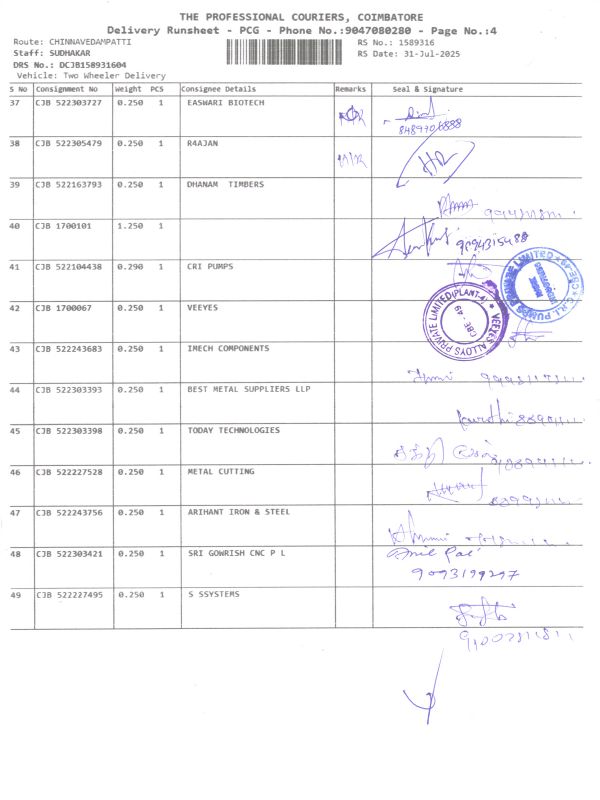 THE PROFESSIONAL COURIERS, COIMBATORE
Delivery Runsheet - PCG - Phone No.:9047080280 - Page No.:4
Route: CHINNAVEDAMPATTI RS No.: 1589316
Staff: SUDHAKAR RS Date: 31-Jul-2025
DRS No.: DCJB158931604
Vehicle: Two Wheeler Delivery
S No Consignment No Weight PCS Consignee Details Remarks Seal & Signature
37 CJB 522303727 0.250 1 EASWARI BIOTECH
8489906888
38 CJB 522305479 0.250 1 R4AJAN
39 CJB 522163793 0.250 1 DHANAM TIMBERS
40 CJB 1700101 1.250 1
9094315488
41 CJB 522104438 0.290 1 CRI PUMPS
C.R.I. PUMPS PRIVATE LIMITED
42 CJB 1700067 0.250 1 VEEYES
VEEZES ALLOYS PRIVATE LIMITED(PLANT-4)
CBE - 49
43 CJB 522243683 0.250 1 IMECH COMPONENTS
44 CJB 522303393 0.250 1 BEST METAL SUPPLIERS LLP
45 CJB 522303398 0.250 1 TODAY TECHNOLOGIES
46 CJB 522227528 0.250 1 METAL CUTTING
47 CJB 522243756 0.250 1 ARIHANT IRON & STEEL
48 CJB 522303421 0.250 1 SRI GOWRISH CNC P L
9093199297
49 CJB 522227495 0.250 1 S SSYSTEMS